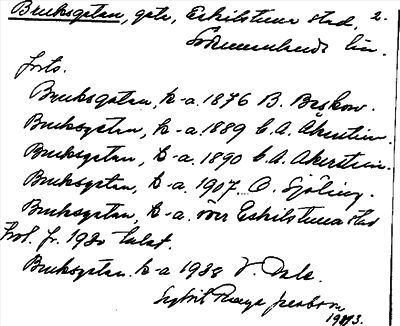 Bruksgatan, gata, Eskilstuna stad. 2.
Södermanlands län.
forts.
Bruksgatan, k-a. 1876 B. Beskow.
Bruksgatan, k-a. 1889 C. A. Åkerstein.
Bruksgatan, k-a. 1890 C. A. Åkerstein.
Bruksgatan, k-a. 1907. O. Sjöling.
Bruksgatan, k-a. över Eskilstuna stad
fr. 1920 talet.
Bruksgatan. k-a 1938 V. Dale.
Sigbrit persson
1983.